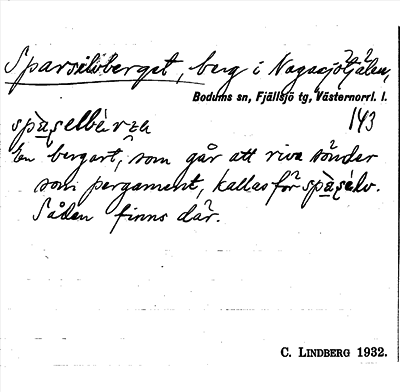 Sparsilöberget, berg i Nagasjötjälen,
Bodums sn, Fjällsjö tg, Västernorrl. l.
143
En bergart, som går att riva sönder
som pergament, kallas för
Såden finns där.
C. LINDBERG 1932.